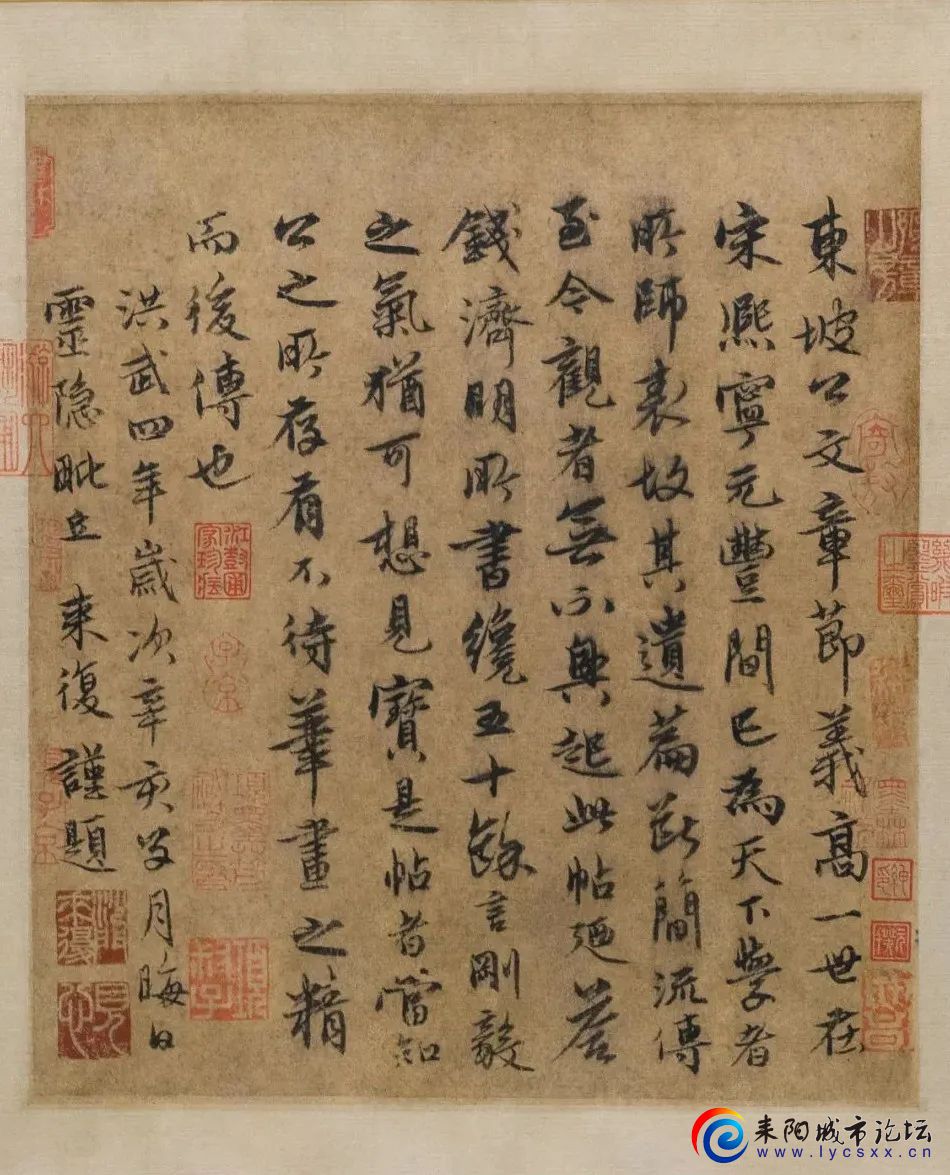 東坡公文章節義高一世在
宋熙寧元豐間已為天下學者
所師表故其遺篇斷簡流傳
至今觀者無不興起此帖迺答
錢濟明所書纔五十餘言剛毅
之氣猶可想見寶是帖者當知
公之所存有不待筆畫之精
而後傳也
洪武四年歲次辛亥四月晦日
靈隐毗丘来復謹題
耒阳城市论坛
www.lycsxx.cn